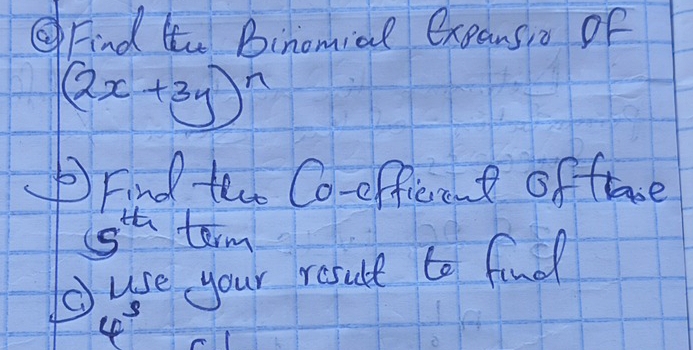 a) Find the Binomial Expansio OF
(2x + 3y)ⁿ
b) Find the Co-efficient of the
5th term
c) use your result to find
4⁵